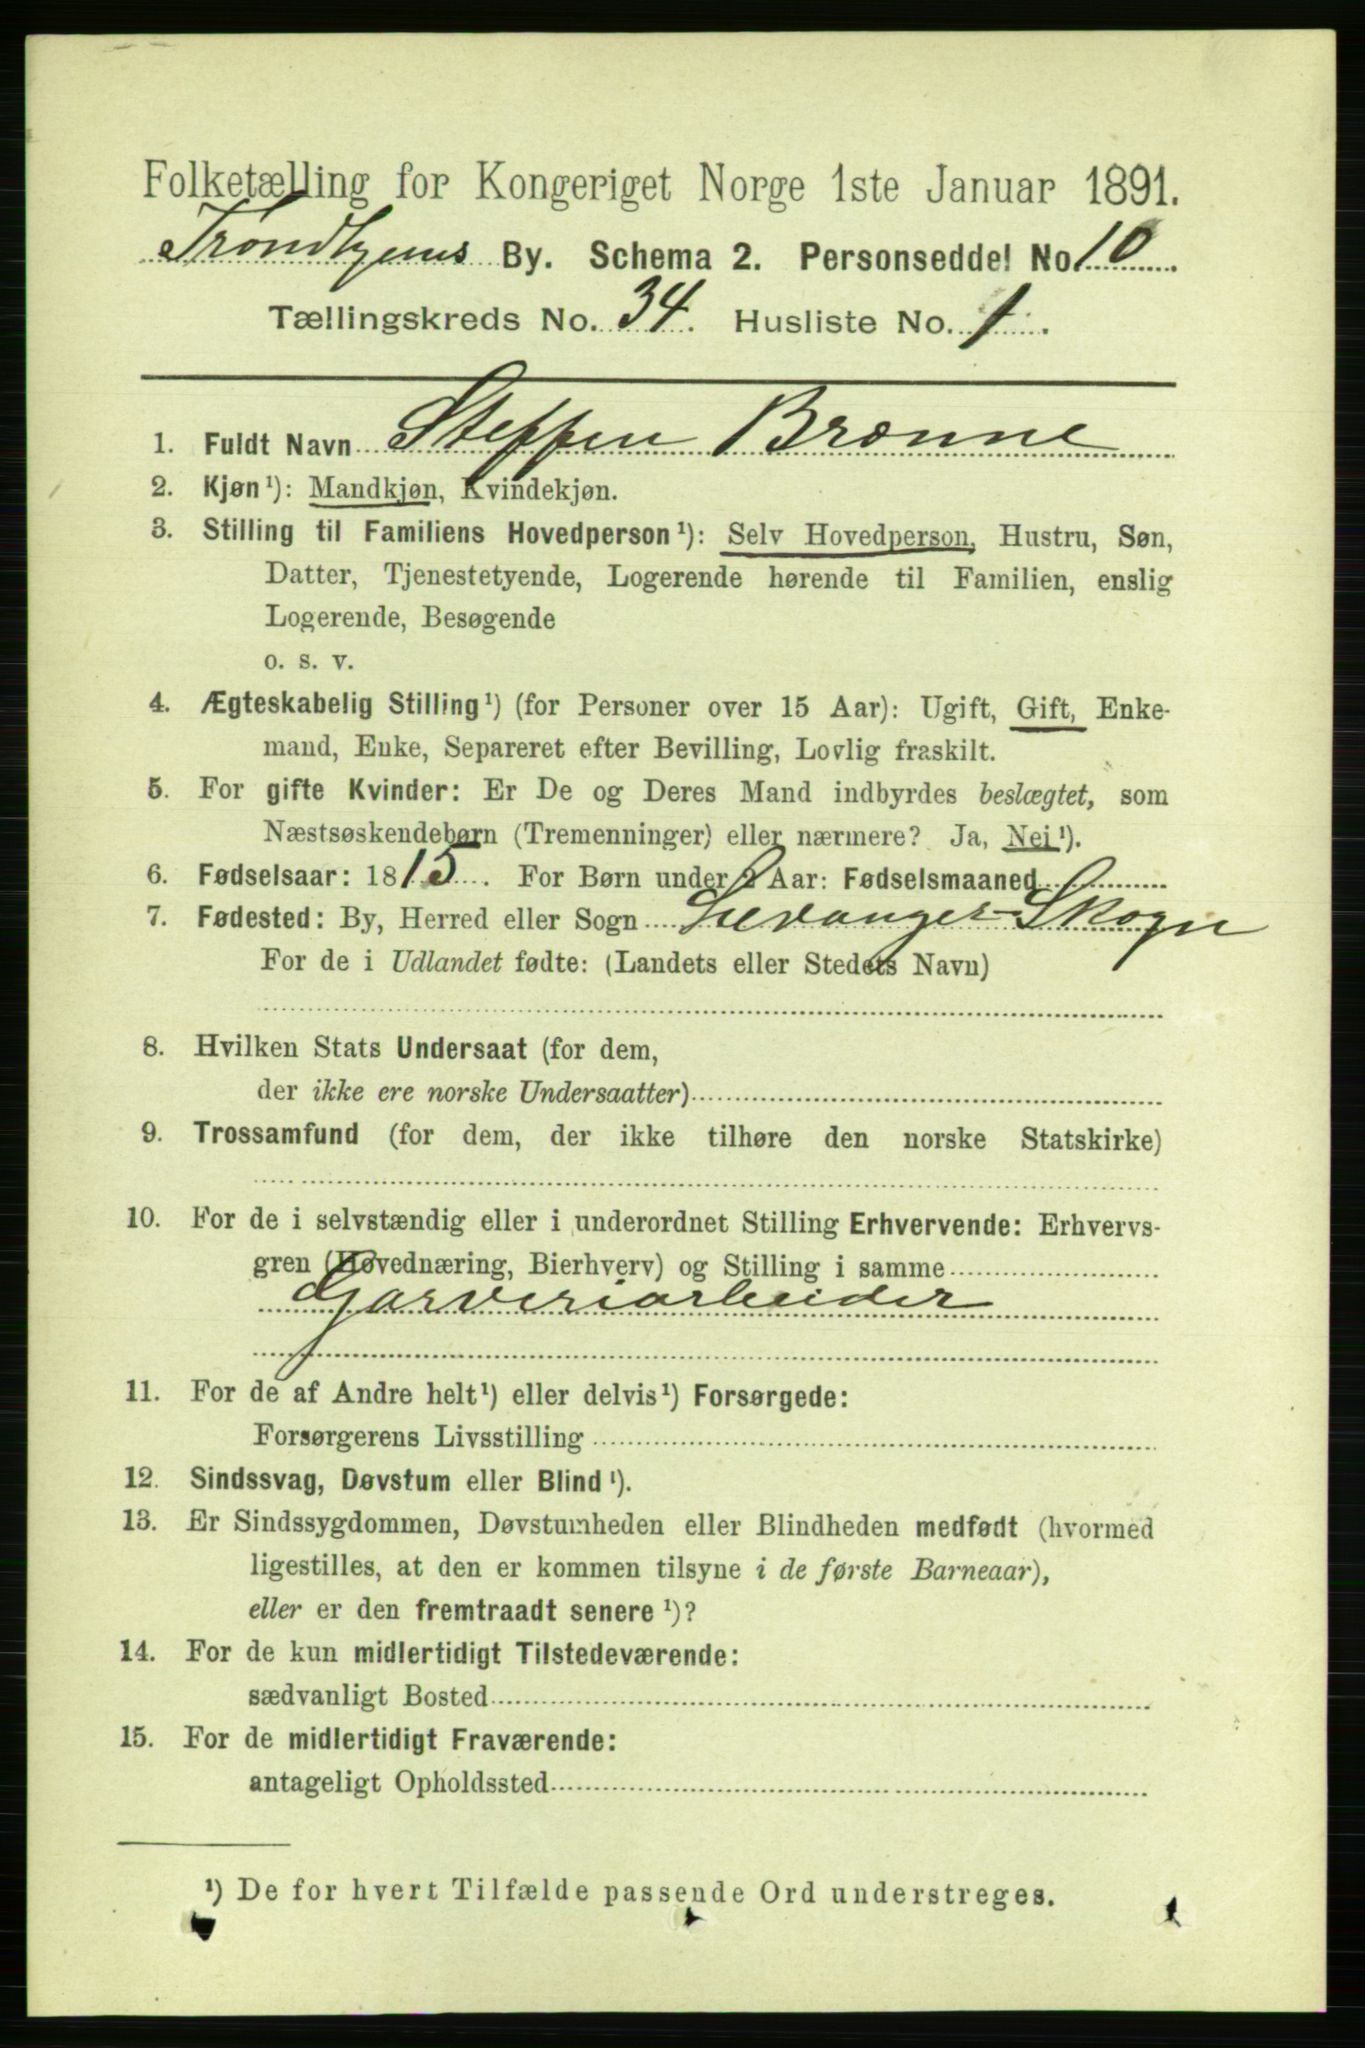 Folketælling for Kongeriget Norge 1ste Januar 1891.
Trondhjems By. Schema 2. Personseddel No 10
Tællingskreds No. 34. Husliste No. 1.
1. Fuldt Navn Steffen Brønne
2. Kjøn¹): Mandkjøn, Kvindekjøn.
3. Stilling til Familiens Hovedperson¹): Selv Hovedperson, Hustru, Søn,
Datter, Tjenestetyende, Logerende hørende til Familien, enslig
Logerende, Besøgende
o. s. v.
4. Ægteskabelig Stilling¹) (for Personer over 15 Aar): Ugift, Gift, Enke-
mand, Enke, Separeret efter Bevilling, Lovlig fraskilt.
5. For gifte Kvinder: Er De og Deres Mand indbyrdes beslægtet, som
Næstsøskendebørn (Tremenninger) eller nærmere? Ja, Nei¹).
6. Fødselsaar: 1815. For Børn under 2 Aar: Fødselsmaaned
7. Fødested: By, Herred eller Sogn Levanger Skogn
For de i Udlandet fødte: (Landets eller Stedets Navn)
8. Hvilken Stats Undersaat (for dem,
der ikke ere norske Undersaatter)
9. Trossamfund (for dem, der ikke tilhøre den norske Statskirke)
10. For de i selvstændig eller i underordnet Stilling Erhvervende: Erhvervs-
gren (Hovednæring, Bierhverv) og Stilling i samme
Garveriarbeider
11. For de af Andre helt¹) eller delvis¹) Forsørgede:
Forsørgerens Livsstilling
12. Sindssvag, Døvstum eller Blind¹).
13. Er Sindssygdommen, Døvstumheden eller Blindheden medfødt (hvormed
ligestilles, at den er kommen tilsyne i de første Barneaar),
eller er den fremtraadt senere¹)?
14. For de kun midlertidigt Tilstedeværende:
sædvanligt Bosted
15. For de midlertidigt Fraværende:
antageligt Opholdssted
¹) De for hvert Tilfælde passende Ord understreges.